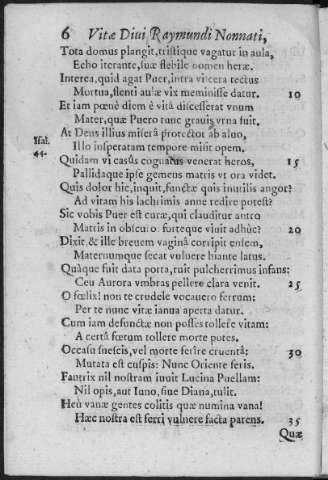 6 Vitæ Diui Raymundi Nonnati,
Tota domus plangit, tristique vagatur in aula,
Echo iterante, suæ flebile nomen heræ.
Interea, quid agat Puer, intra viscera tectus
Mortua, flenti aulæ vix meminisse datur. 10
Et iam pœnè diem è vitâ discesserat vnum
Mater, quæ Puero tunc grauis vrna fuit.
Isai. 44. At Deus illius miserâ protector ab aluo,
Illo insperatam tempore misit opem.
Quidam vi casûs cognatus venerat heros, 15
Pallidaque ipse gemens matris vt ora videt.
Quis dolor hic, inquit, functæ quis inutilis angor?
Ad vitam his lachrimis anne redire potest?
Sic vobis Puer est curæ, qui clauditur antro
Matris in obscuro forteque viuit adhùc? 20
Dixit, & ille breuem vaginâ corripit ensem,
Maternumque secat vulnere hiante latus.
Quàque fuit data porta, ruit pulcherrimus infans:
Ceu Aurora vmbras pellere clara venit. 25
O fœlix! non te crudele vocauero ferrum:
Per te nunc vitæ ianua aperta datur.
Cum iam defunctæ non posses tollere vitam:
A certâ fœtum tollere morte potes.
Occasu suescis, vel morte ferire cruentâ: 30
Mutata est cuspis: Nunc Oriente feris.
Fautrix nil nostram iuuit Lucina Puellam:
Nil opis, aut Iuno, siue Diana, tulit.
Heù vanæ gentes colitis quæ numina vana!
Hæc nostra est ferri vulnere facta parens. 35
Quæ